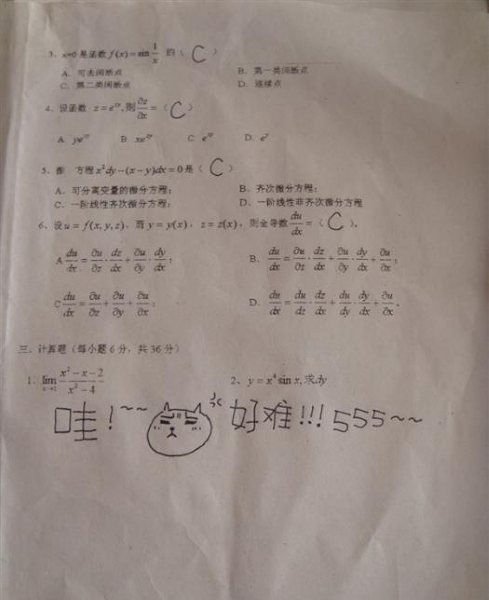 3、x=0 是函数 f(x)=sin 1/x 的（ C ）
A. 可去间断点 B. 第一类间断点
C. 第二类间断点 D. 连续点
4、设函数 z=e^{xy},则 ∂z/∂x =（ C ）
A. ye^{xy} B. xe^{xy} C. e^{xy} D. e^y
5、 方程 x²dy-(x-y)dx=0 是（ C ）
A、可分离变量的微分方程; B、齐次微分方程;
C、一阶线性齐次微分方程; D、一阶线性非齐次微分方程
6、设 u=f(x,y,z), 而 y=y(x), z=z(x), 则全导数 du/dx =（ C ）。
A du/dx = ∂u/∂z · dz/dx + ∂u/∂y · dy/dx; B、 du/dx = ∂u/∂z · dz/dx + ∂u/∂y · dy/dx + ∂u/∂x;
C du/dx = ∂u/∂z + ∂u/∂y + ∂u/∂x; D. du/dx = du/dz · dz/dx + du/dy · dy/dx + ∂u/∂x.
三、计算题（每小题 6 分，共 36 分）
1、lim (x²-x-2)/(x²-4) 2、y=x⁴ sin x, 求 dy
哇！~~ 好难!!! 555~~